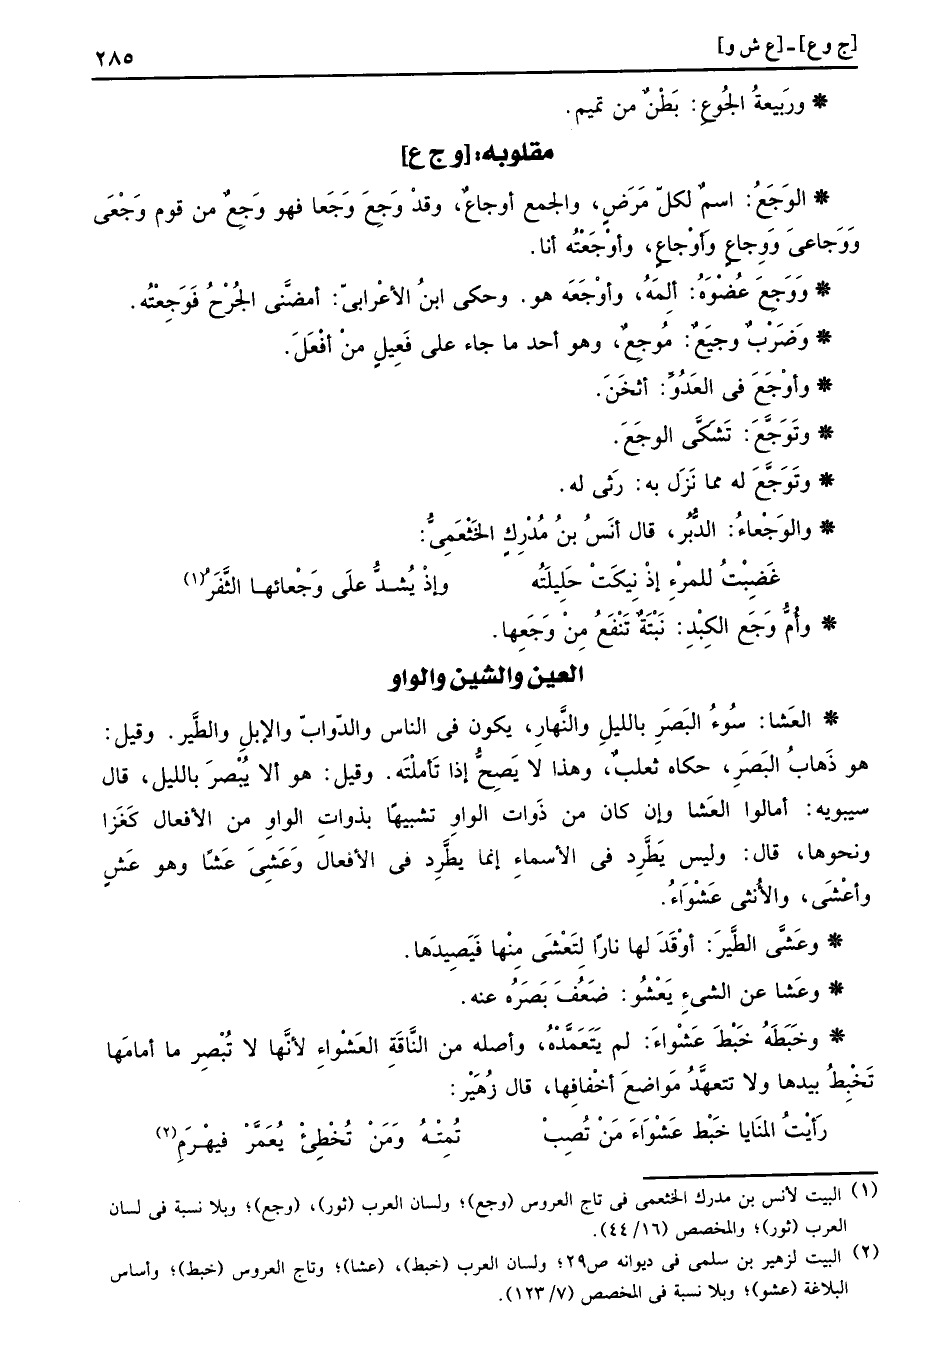 [ج و ع] - [ع ش و]
٢٨٥
* ورَبيعةُ الجُوعِ: بَطْنٌ من تميم.
مقلوبه: [و ج ع]
* الوَجَعُ: اسمٌ لكلّ مَرَضٍ، والجمع أوجاعٌ، وقدْ وَجِعَ وَجَعا فهو وَجِعٌ من قوم وَجْعَى
وَوَجاعىَ وَوِجاعٍ وَأَوْجاعٍ، وأوْجَعْتُه أنا.
* وَوَجِعَ عُضْوَهُ: ألِمَهُ، وأوْجَعَه هو. وحكى ابنُ الأعْرابىّ: أمضنَّى الجُرْحُ فَوَجِعْتُه.
* وَضَرْبٌ وجيَعٌ: مُوجِعٌ، وهو أحد ما جاء على فَعِيلٍ منْ أفْعَلَ.
* وأوْجَعَ فى العَدُوِّ: أثخَنَ.
* وتَوَجَّعَ: تَشكَّى الوجَعَ.
* وتَوَجَّعَ له مما نَزَل به: رَثى له.
* والوَجْعاءُ: الدُّبُر، قال أنَسُ بنُ مُدْرِكٍ الخَثْعَمِىُّ:
غَضِبْتُ للمرْءِ إذْ نِيكَتْ حَلِيلَتُه وإذْ يُشدُّ علَى وَجْعائها الثَّفَرُ(١)
* وأُمُّ وَجَع الكِبْدِ: نَبْتَةٌ تَنْفَعُ مِنْ وَجَعِها.
العين والشين والواو
* العَشا: سُوءُ البَصَرِ بالليلِ والنَّهارِ، يكون فى الناس والدّوابّ والإبلِ والطَّير. وقيل:
هو ذَهابُ البَصَرِ، حكاه ثعلبٌ، وهذا لا يَصِحُّ إذا تَأملْتَه. وقيل: هو ألا يُبْصرَ بالليل، قال
سيبويه: أمالوا العَشا وإن كان من ذَوات الواوِ تشبيهًا بذواتِ الواوِ من الأفعال كَغَزا
ونحوها، قال: وليس يَطَّرِد فى الأسماءِ إنما يطَّرِد فى الأفعال وَعَشِىَ عَشًا وهو عَشٍ
وأعْشَى، والأُنثى عَشْوَاءُ.
* وعَشَّى الطَّيرَ: أوْقَدَ لها نارًا لِتَعْشَى مِنْها فَيَصِيدَها.
* وعَشا عن الشىءِ يَعْشُو: ضَعُفَ بَصَرُه عنه.
* وخَبَطَهُ خَبْطَ عَشْواءَ: لم يَتَعَمَّدْهُ، وأصله من النَّاقَةِ العَشْواءِ لأنَّها لا تُبْصِر ما أمامَها
تَخْبِطُ بيدها ولا تتعهَّدُ مَواضعَ أخْفافِها، قال زُهَيْر:
رَأيْتُ المَنَايا خَبْط عَشْوَاءَ مَنْ تُصِبْ تُمِتْهُ وَمَنْ تُخْطِئْ يُعَمَّرْ فيهْرَمِ(٢)
(١) البيت لأنس بن مدرك الخثعمى فى تاج العروس (وجع)؛ ولسان العرب (ثور)، (وجع)؛ وبلا نسبة فى لسان
العرب (ثور)؛ والمخصص (١٦/ ٤٤).
(٢) البيت لزهير بن سلمى فى ديوانه ص٢٩؛ ولسان العرب (خبط)، (عشا)؛ وتاج العروس (خبط)؛ وأساس
البلاغة (عشو)؛ وبلا نسبة فى المخصص (٧/ ١٢٣).